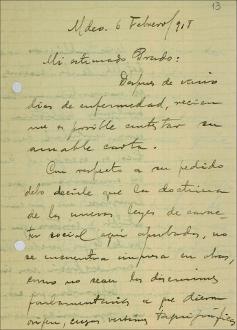 13
Mdeo. 6 Febrero/918
Mi estimado Prado:
Después de varios
dias de enfermedad, recien
me es posible contestar su
amable carta.
Con respecto a su pedido
debo decirle que la doctrina
de las nuevas leyes de carac-
ter social aqui aprobadas, no
se encuentra impresa en obras,
como no sean las discusiones
parlamentarias a que dieron
origen, cuyas versiones taquigráficas